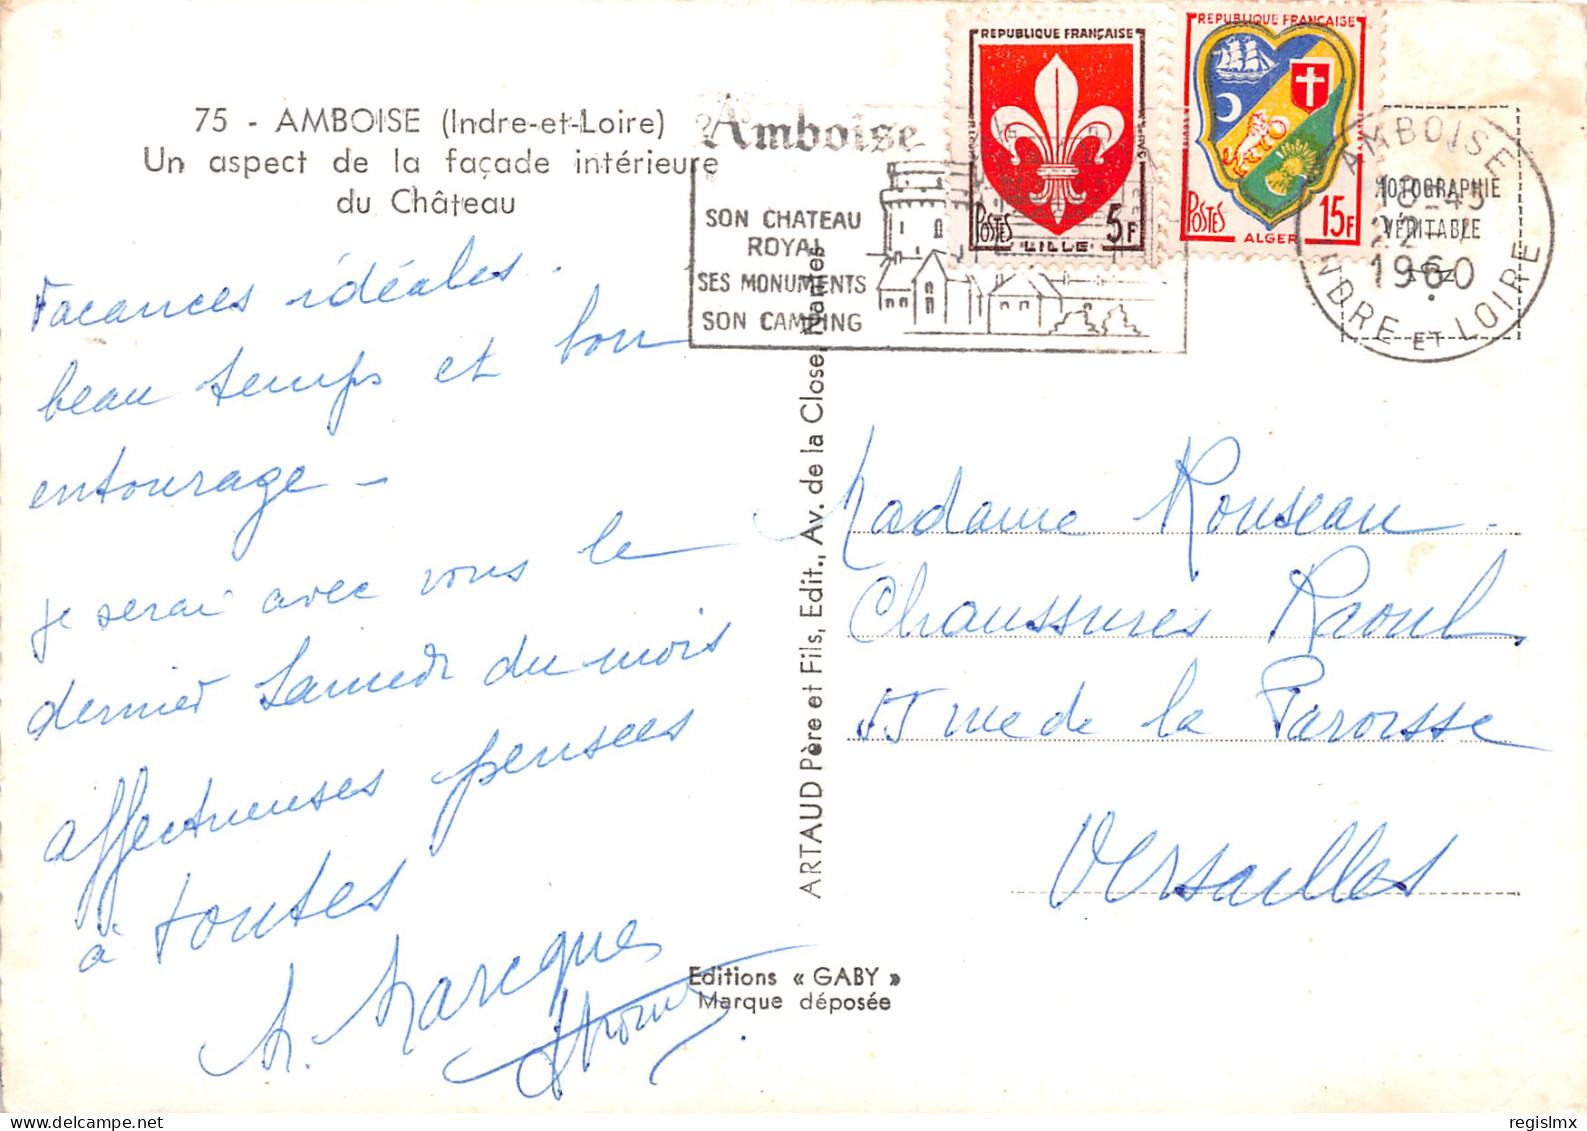 75 - AMBOISE (Indre-et-Loire)
Un aspect de la façade intérieure
du Château
Vacances idéales.
beau temps et bon
entourage -
je serai avec vous le
dernier Samedi du mois
affectueuses pensees
à toutes
Amboise
SON CHATEAU
ROYAL
SES MONUMENTS
SON CAMPING
REPUBLIQUE FRANÇAISE
POSTES
5F
LILLE
REPUBLIQUE FRANÇAISE
POSTES
15F
ALGER
AMBOISE
18-45
1960
INDRE ET LOIRE
PHOTOGRAPHIE
VÉRITABLE
ARTAUD Père et Fils, Edit., Av. de la Close, Nantes
Madame Rousseau
Chaussures Raoul
55 rue de la Paroisse
Versailles
Editions « GABY »
Marque déposée
regislmx